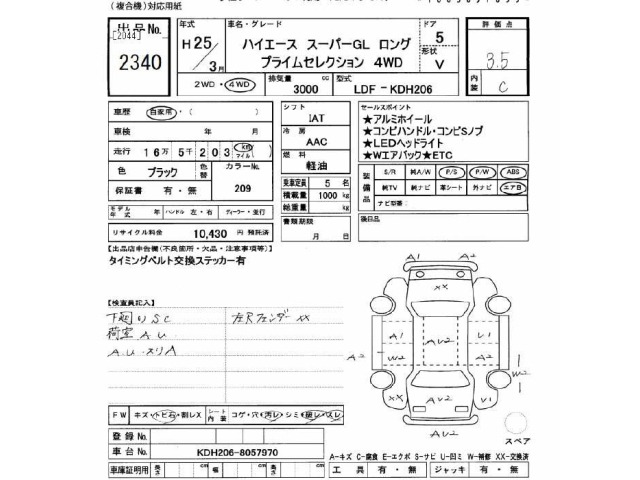 (複合機)対応用紙
出品No.
[2044]
2340
年式
H25/3月
車名・グレード
ハイエース スーパーGL ロング
プライムセレクション 4WD
ドア
5
形状
V
評価点
3.5
内装
C
2WD・4WD
排気量
3000 cc
型式
LDF-KDH206
車歴 自家用・( )
車検 年 月
走行 16万5千203 Km マイル
色 ブラック
色替
カラーNo.
209
保証書 有・無
モデル年式 年 ハンドル 左・右 ディーラー・並行
リサイクル料金 10,430 円 預託済
シフト
IAT
冷房
AAC
燃料
軽油
乗車定員 5 名
積載量 1000 kg
総重量 kg
書類期限
月 日
セールスポイント
★アルミホイール
★コンビハンドル・コンビSノブ
★LEDヘッドライト
★Wエアバック★ETC
装備品
S/R 純A/W P/S P/W ABS
純TV 純ナビ 革シート 外ナビ エアB
ナビ型番:
後日品
[出品店申告欄(不良箇所・欠品・注意事項等)]
タイミングベルト交換ステッカー有
[検査員記入]
下廻りSC 左Rフェンダー XX
荷室 A.U
A.U・スリA
A2 A2
XX
A1 AU2 U1
A2 W2 A2 W2
XX AU2 V1
AU2
スペア
FW キズ・トビ石・割レX シート内装 コゲ・穴・汚レ・シミ・破レ・スレ
登録No.
車台No. KDH206-8057970
車庫証明用 長さ cm 幅 cm 高さ cm
A-キズ C-腐食 E-エクボ S-サビ U-凹ミ W-補修 XX-交換済
工具 有・無 ジャッキ 有・無